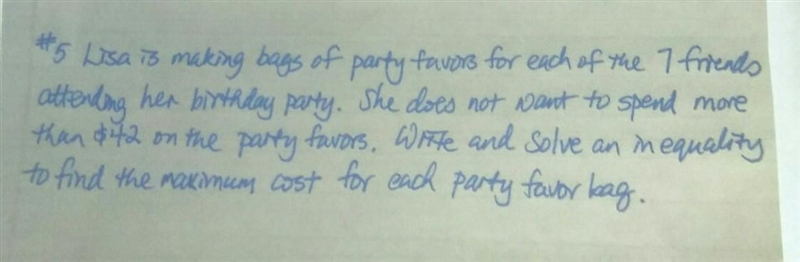 #5 Lisa is making bags of party favors for each of the 7 friends
attending her birthday party. She does not want to spend more
than $42 on the party favors. Write and solve an inequality
to find the maximum cost for each party favor bag.